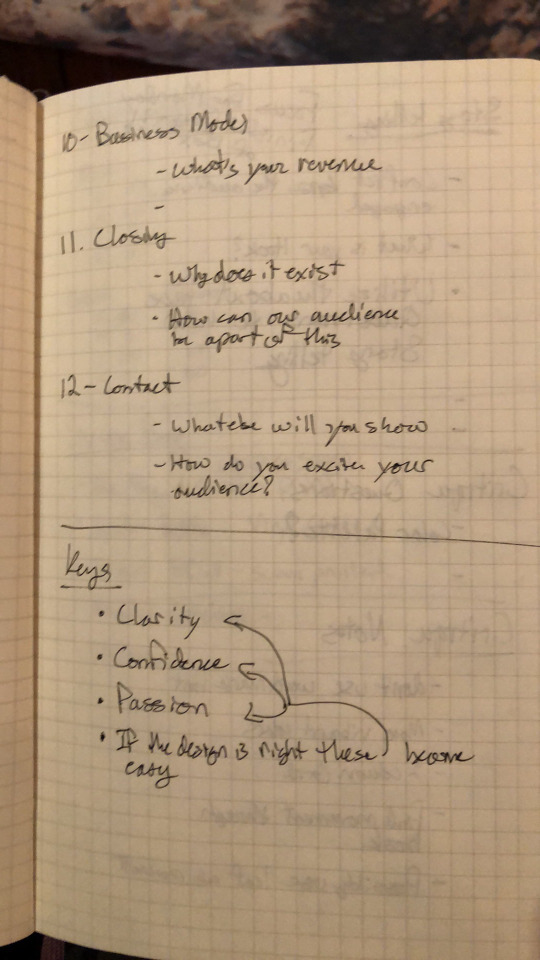 10- Business Model
- What's your revenue
-
11. Closing
- Why does it exist
• How can our audience
be apart of this
12- Contact
- What else will you show
- How do you excite your
audience?
Keys
• Clarity
• Confidence
• Passion
• If the design is right these become
easy